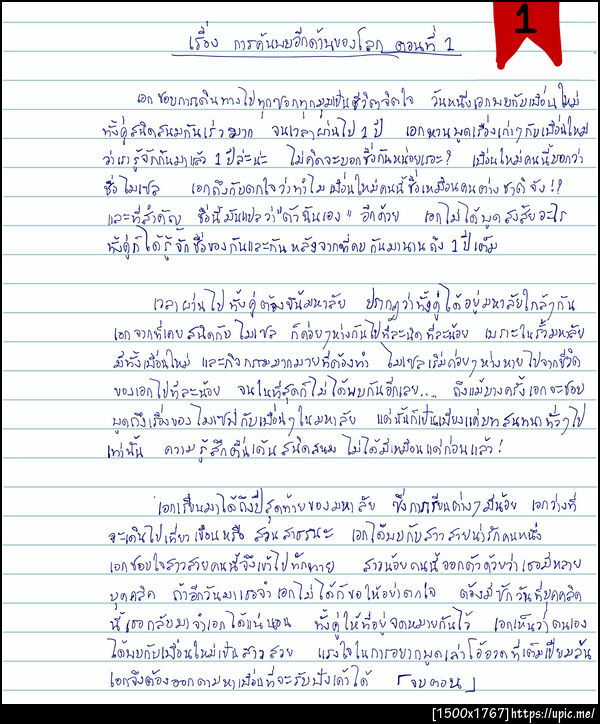 1
เรื่อง การค้นพบอีกด้านของโลก ตอนที่ 1
เอกชอบการเดินทางไปทุกๆซอกทุกมุมเป็นชีวิตจิตใจ วันหนึ่งเอกพบกับเพื่อนใหม่
ทั้งคู่สนิดสนมกันเร็วมาก จนเวลาผ่านไป 1 ปี เอกหวนพูดเรื่องเก่าๆกับเพื่อนใหม่
ว่าเรารู้จักกันมาแล้ว 1 ปีล่ะน่ะ ไม่คิดจะบอกชื่อกันหน่อยเรอะ? เพื่อนใหม่คนนี้บอกว่า
ชื่อไมเซล เอกถึงกับตกใจว่าทำไมเพื่อนใหม่คนนี้ชื่อเหมือนคนต่างชาติจัง!?
และที่สำคัญ ชื่อนี้มันแปลว่า"ตัวฉันเอง" อีกด้วย เอกไม่ได้พูดสงสัยอะไร
ทั้งคู่ก็ได้รู้จักชื่อของกันและกัน หลังจากที่คบกันมานานถึง 1 ปีเต็ม
เวลาผ่านไปทั้งคู่ต้องขึ้นมหาลัย ปรากฏว่าทั้งคู่ได้อยู่มหาลัยใกล้ๆกัน
เอกจากที่เคยสนิดกับไมเซล ก็ค่อยๆห่างกันไปทีละนิดทีละน้อย เพราะในรั้วมหลัย
มีทั้งเพื่อนใหม่ และกิจกรรมมากมายที่ต้องทำ ไมเซลเริ่มค่อยๆห่างหายไปจากชีวิต
ของเอกไปทีละน้อย จนในที่สุดก็ไม่ได้พบกันอีกเลย... ถึงแม้บางครั้งเอกจะชอบ
พูดถึงเรื่องของไมเซลกับเพื่อนๆในมหาลัย แต่นั่นก็เป็นเพียงแค่บทสนทนาทั่วๆไป
เท่านั้น ความรู้สึกตื่นเต้นสนิดสนม ไม่ได้มีเหมือนแต่ก่อนแล้ว!
เอกเรียนมาได้ถึงปีสุดท้ายของมหาลัย ซึ่งการเรียนต่างๆมีน้อย เอกว่างที่
จะเดินไปเที่ยวเขื่อนหรือ สวนสาธรณะ เอกได้พบกับสาวสวยน่ารักคนหนึ่ง
เอกชอบใจสาวสวยคนนี้จึงเข้าไปทักทาย สาวน้อยคนนี้บอกตัวด้วยว่าเธอมีหลาย
บุคคลิค ถ้าอีกวันมาเธอจำเอกไม่ได้ก็ขอให้อย่าตกใจ ต้องมีซักวันที่บุคคลิค
นี้เธอกลับมาจำเอกได้แน่นอน ทั้งคู่ให้ที่อยู่จดหมายกันไว้ เอกเห็นว่าตนเอง
ได้พบกับเพื่อนใหม่เป็นสาวสวย แรงใจในการอยากพูดเล่าโอ้อวดที่เต็มเปี่ยมล้น
เอกจึงต้องออกตามหาเพื่อนที่จะรับฟังเค้าได้ 「จบตอน」
[1500x1767]https://upic.me/